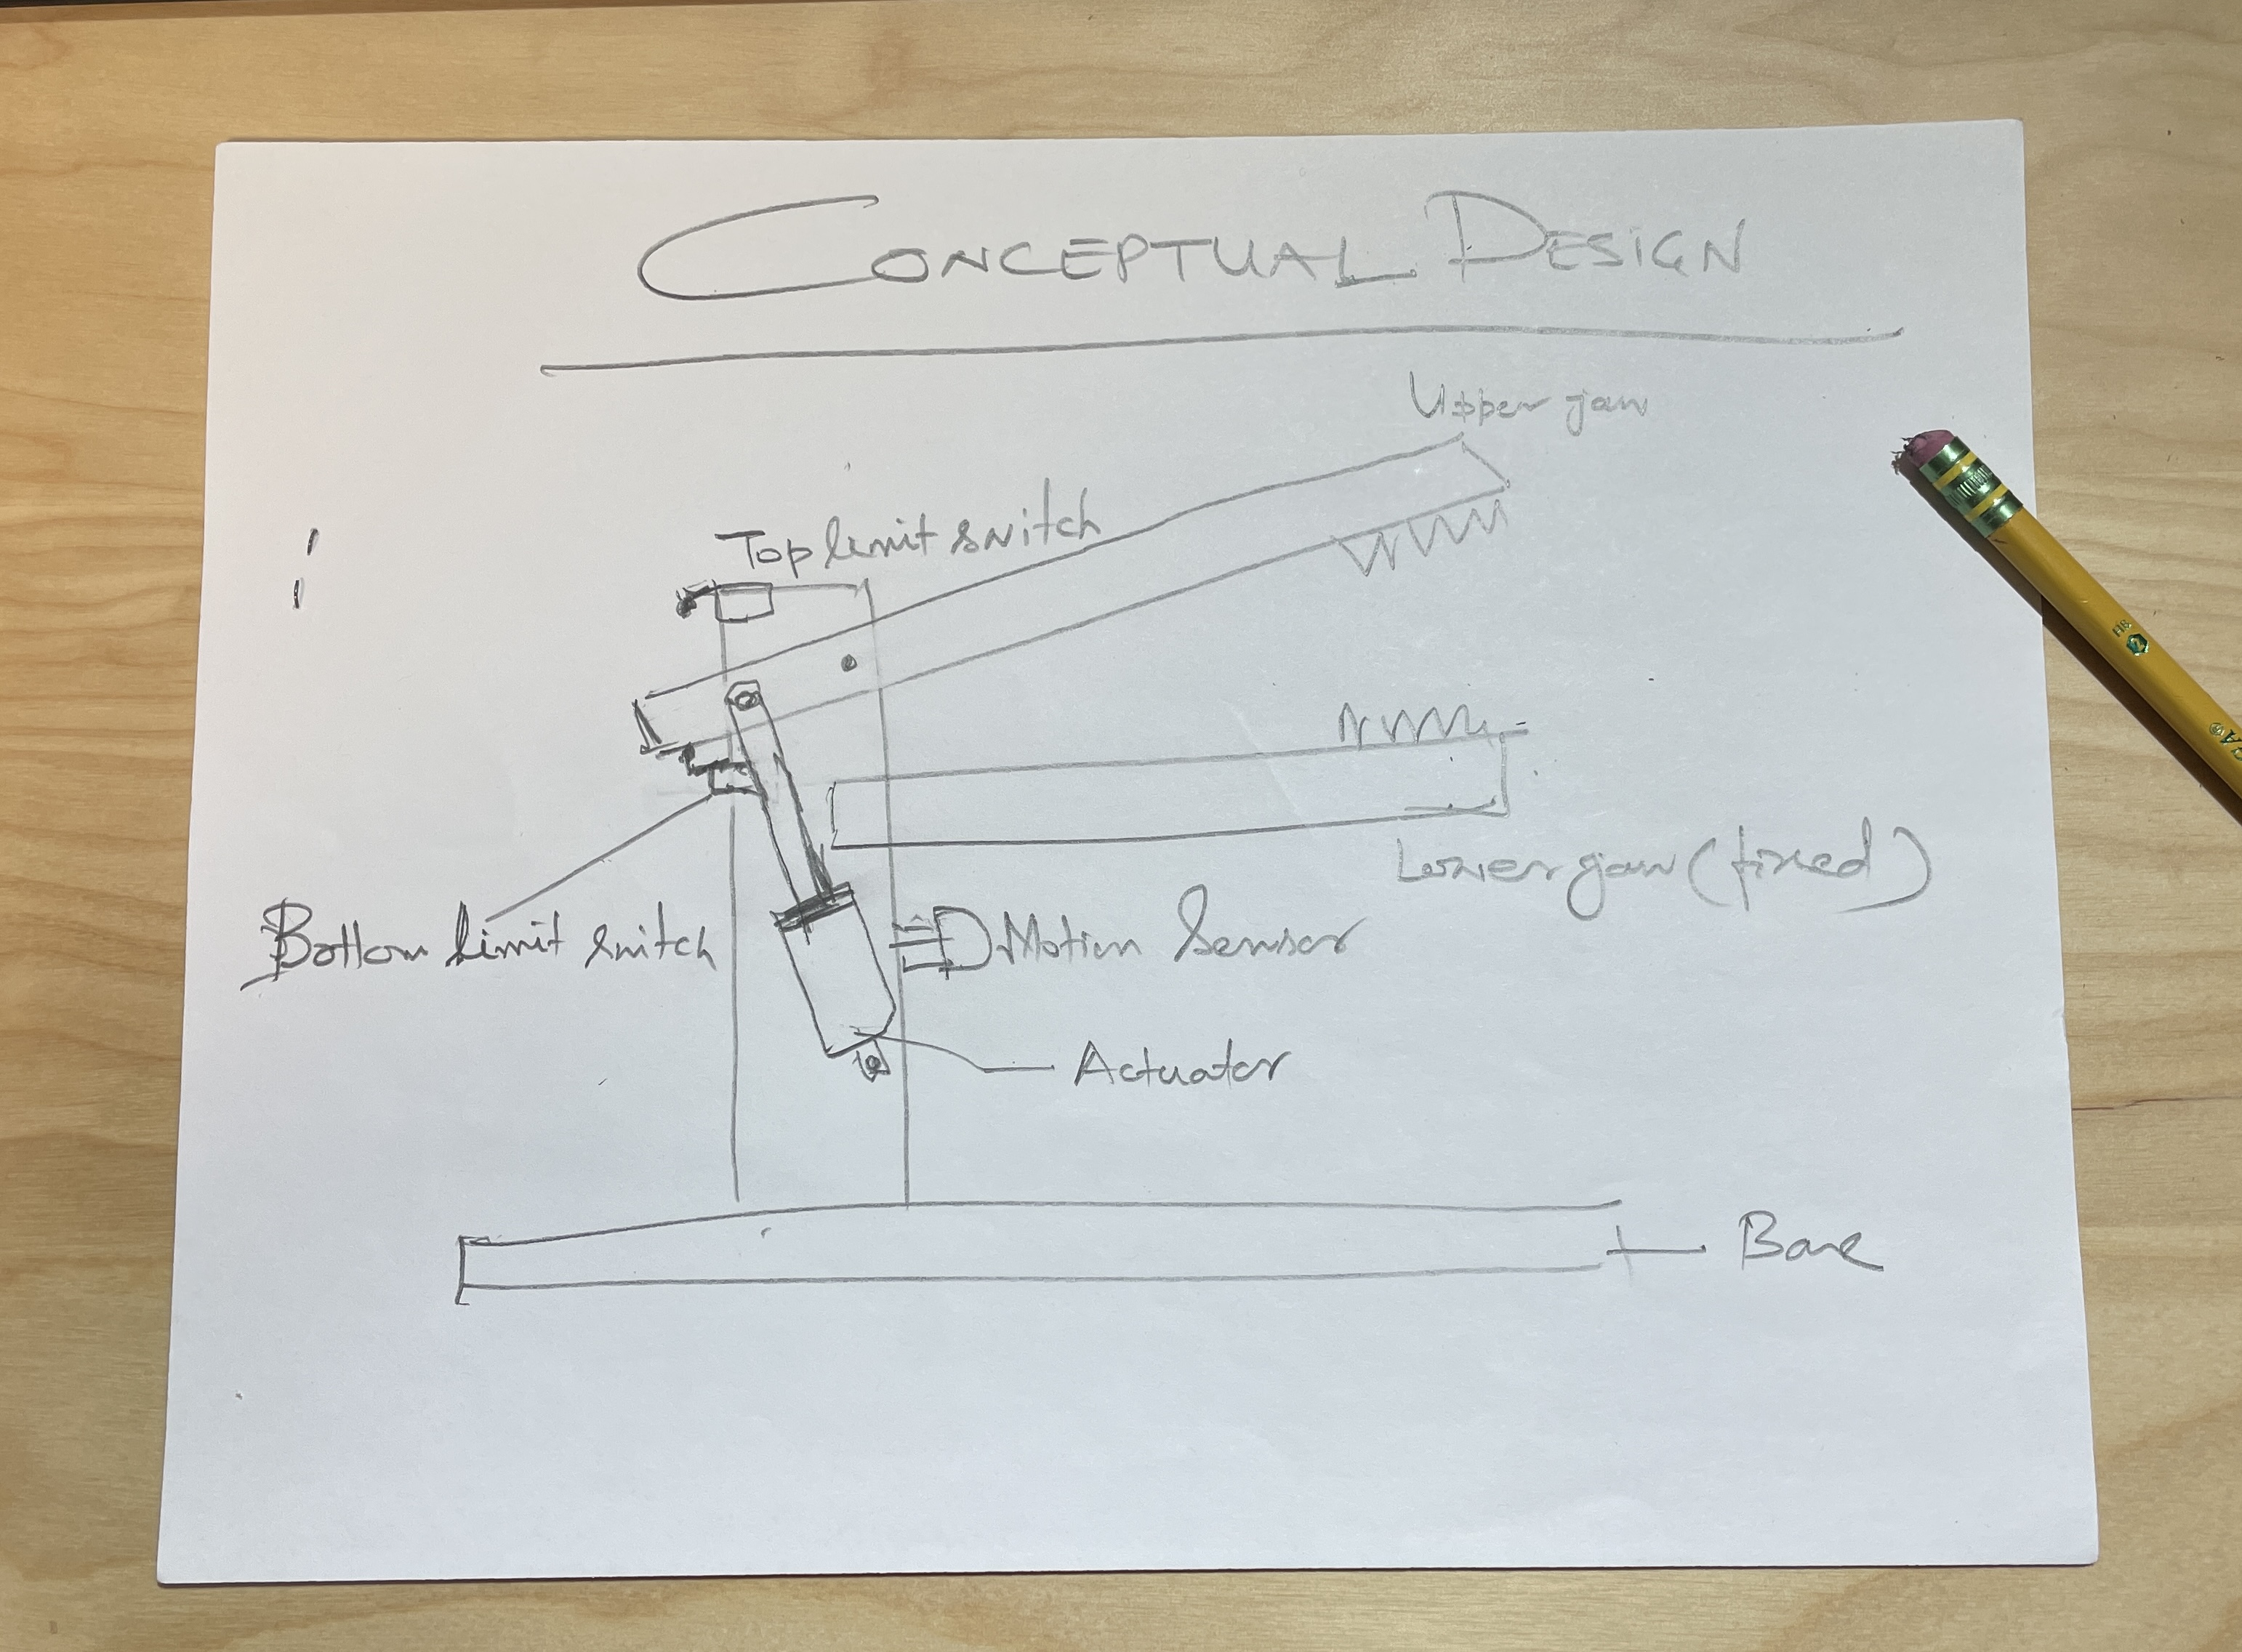 CONCEPTUAL DESIGN
Upper jaw
Top limit switch
Lower jaw (fixed)
Bottom limit switch
Motion Sensor
Actuator
Base
HB
2